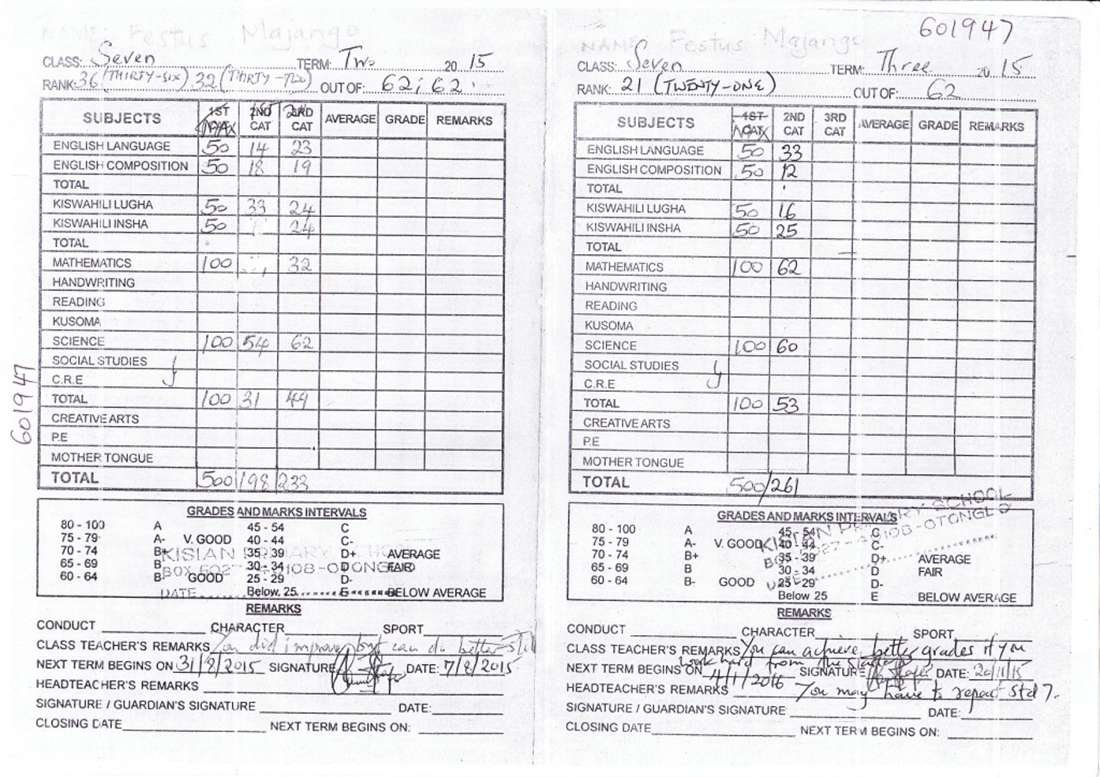 NAME: Festus Majango
CLASS: Seven TERM: Two 2015
RANK: 36 (THIRTY-SIX) 32 (THIRTY-TWO) OUT OF: 62; 62
SUBJECTS 1ST MAX 2ND CAT 3RD CAT AVERAGE GRADE REMARKS
ENGLISH LANGUAGE 50 14 23
ENGLISH COMPOSITION 50 18 19
TOTAL
KISWAHILI LUGHA 50 33 24
KISWAHILI INSHA 50 24
TOTAL
MATHEMATICS 100 32
HANDWRITING
READING
KUSOMA
SCIENCE 100 54 62
SOCIAL STUDIES
C.R.E
TOTAL 100 31 49
CREATIVE ARTS
P.E
MOTHER TONGUE
TOTAL 500 198 233
GRADES AND MARKS INTERVALS
80 - 100 A 45 - 54 C
75 - 79 A- V. GOOD 40 - 44 C-
70 - 74 B+ 35 - 39 D+ AVERAGE
65 - 69 B 30 - 34 D FAIR
60 - 64 B- GOOD 25 - 29 D-
Below 25 E BELOW AVERAGE
KISIAN PRIMARY SCHOOL
DATE
REMARKS
CONDUCT CHARACTER SPORT
CLASS TEACHER'S REMARKS You did improve but can do better still
NEXT TERM BEGINS ON 31/8/2015 SIGNATURE DATE: 7/8/2015
HEADTEACHER'S REMARKS
SIGNATURE / GUARDIAN'S SIGNATURE DATE:
CLOSING DATE NEXT TERM BEGINS ON:
601947
601947
NAME: Festus Majango
CLASS: Seven TERM: Three 2015
RANK: 21 (TWENTY-ONE) OUT OF: 62
SUBJECTS 1ST CAT MAX 2ND CAT 3RD CAT AVERAGE GRADE REMARKS
ENGLISH LANGUAGE 50 33
ENGLISH COMPOSITION 50 12
TOTAL
KISWAHILI LUGHA 50 16
KISWAHILI INSHA 50 25
TOTAL
MATHEMATICS 100 62
HANDWRITING
READING
KUSOMA
SCIENCE 100 60
SOCIAL STUDIES
C.R.E
TOTAL 100 53
CREATIVE ARTS
P.E
MOTHER TONGUE
TOTAL 500/261
GRADES AND MARKS INTERVALS
80 - 100 A 45 - 54 C
75 - 79 A- V. GOOD 40 - 44 C-
70 - 74 B+ 35 - 39 D+ AVERAGE
65 - 69 B 30 - 34 D FAIR
60 - 64 B- GOOD 25 - 29 D-
Below 25 E BELOW AVERAGE
REMARKS
CONDUCT CHARACTER SPORT
CLASS TEACHER'S REMARKS You can achieve better grades if you
work hard from the start
NEXT TERM BEGINS ON 4/1/2016 SIGNATURE DATE: 20/11/15
HEADTEACHER'S REMARKS You may have to repeat std 7.
SIGNATURE / GUARDIAN'S SIGNATURE DATE:
CLOSING DATE NEXT TERM BEGINS ON: